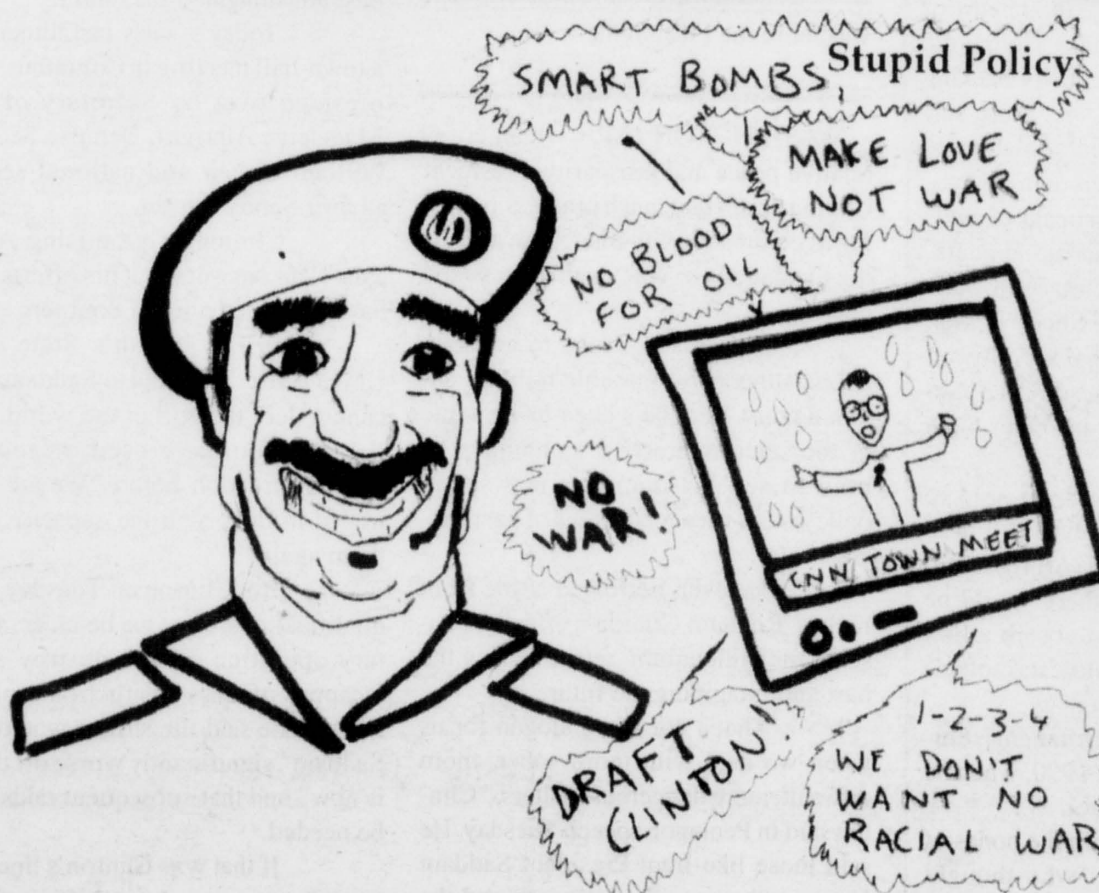 SMART BOMBS, Stupid Policy
MAKE LOVE
NOT WAR
NO BLOOD
FOR OIL
NO
WAR!
CNN TOWN MEET
DRAFT
CLINTON!
1-2-3-4
WE DON'T
WANT NO
RACIAL WAR